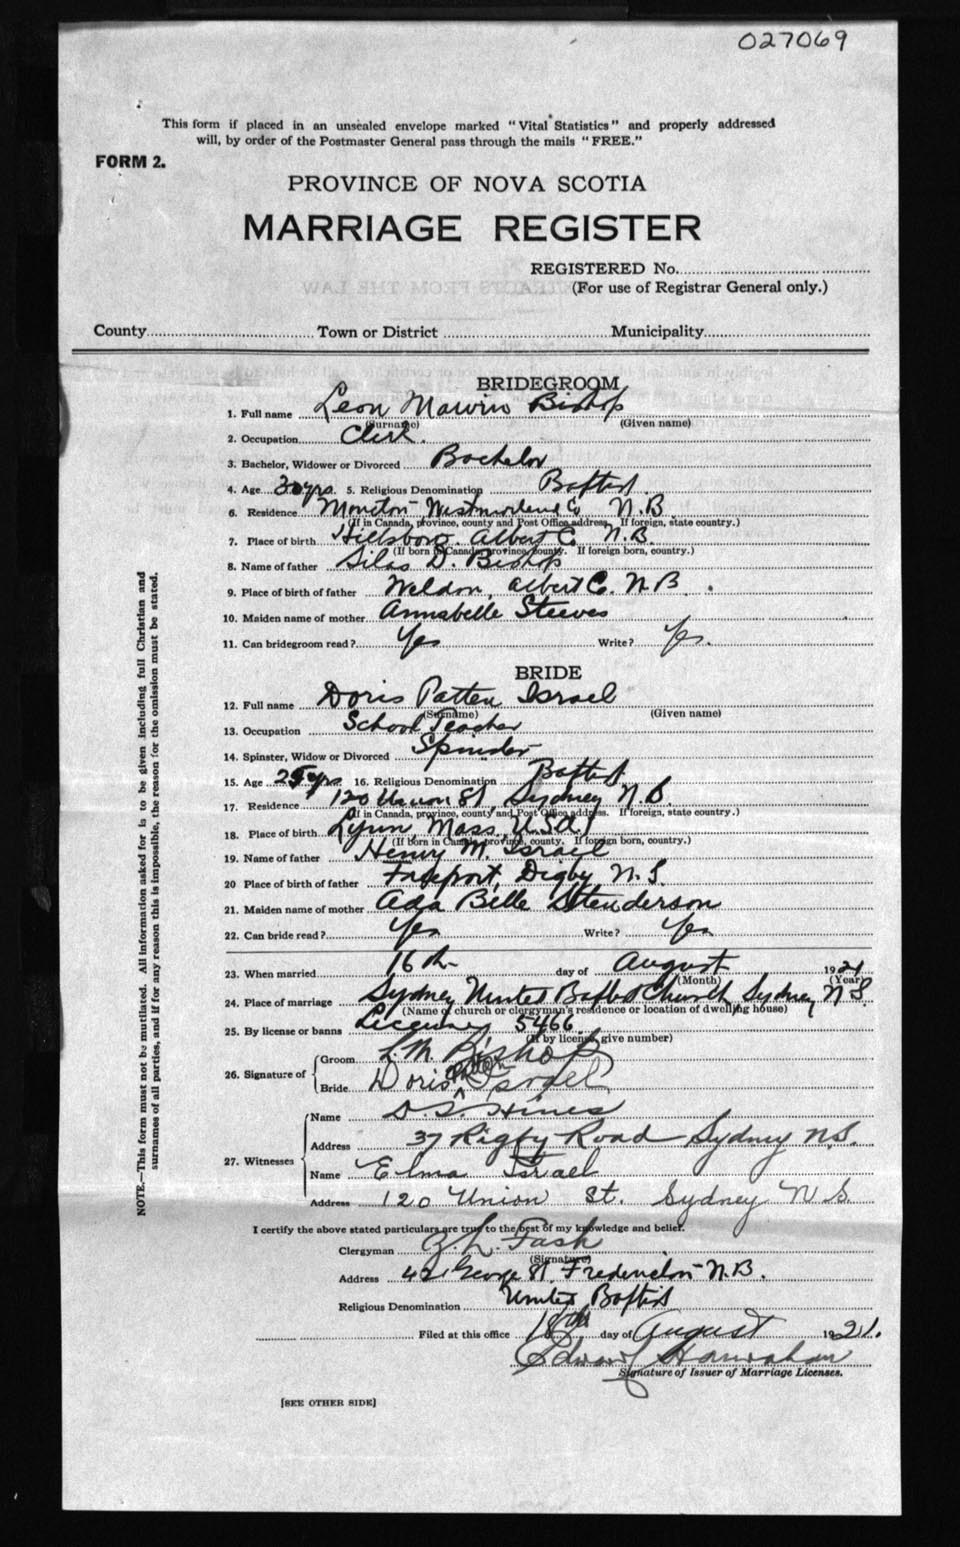 027069
This form if placed in an unsealed envelope marked "Vital Statistics" and properly addressed
will, by order of the Postmaster General pass through the mails "FREE."
FORM 2.
PROVINCE OF NOVA SCOTIA
MARRIAGE REGISTER
REGISTERED No.
(For use of Registrar General only.)
County Town or District Municipality
BRIDEGROOM
1. Full name Leon Bishop
(Surname) (Given name)
2. Occupation Clerk.
3. Bachelor, Widower or Divorced Bachelor
4. Age 30 yrs. 5. Religious Denomination Baptist
6. Residence Moncton Westmorland Co N.B
(If in Canada, province, county and Post Office address. If foreign, state country.)
7. Place of birth Hillsboro. Albert Co. N.B.
(If born in Canada, province, county. If foreign born, country.)
8. Name of father Silas D. Bishop
9. Place of birth of father Weldon, Albert Co. N.B.
10. Maiden name of mother Annabelle Steeves
11. Can bridegroom read? Yes Write? Yes.
BRIDE
12. Full name Doris Patten Israel
(Surname) (Given name)
13. Occupation School Teacher
14. Spinster, Widow or Divorced Spinster
15. Age yrs 16. Religious Denomination Baptist
17. Residence 120 Union St, Sydney N.S.
(If in Canada, province, county, and Post Office address. If foreign, state country.)
18. Place of birth Lynn, Mass. U.S.A.
(If born in Canada, province, county. If foreign born, country.)
19. Name of father Henry M. Israel
20 Place of birth of father Freeport, Digby N.S.
21. Maiden name of mother Ada Belle
22. Can bride read? Yes Write? Yes
23. When married 16th day of August 1921
(Month) (Year)
24. Place of marriage Sydney United Baptist Church, Sydney N S
(Name of church or clergyman's residence or location of dwelling house)
25. By license or banns License 5466
(If by license, give number)
26. Signature of Groom L. M. Bishop
Bride Doris Patten Israel
27. Witnesses
Name D. S. Hines
Address 37 Rigby Road Sydney N.S.
Name Elma Israel
Address 120 Union St. Sydney N S
I certify the above stated particulars are true to the best of my knowledge and belief.
Clergyman Z. L. Fash
(Signature)
Address George St. Fredericton N.B.
Religious Denomination United Baptist
Filed at this office 18th day of August 1921.
Edward Hanrahan
Signature of Issuer of Marriage Licenses.
[SEE OTHER SIDE]
NOTE.—This form must not be mutilated. All information asked for is to be given including full Christian and
surnames of all parties, and if for any reason this is impossible, the reason for the omission must be stated.